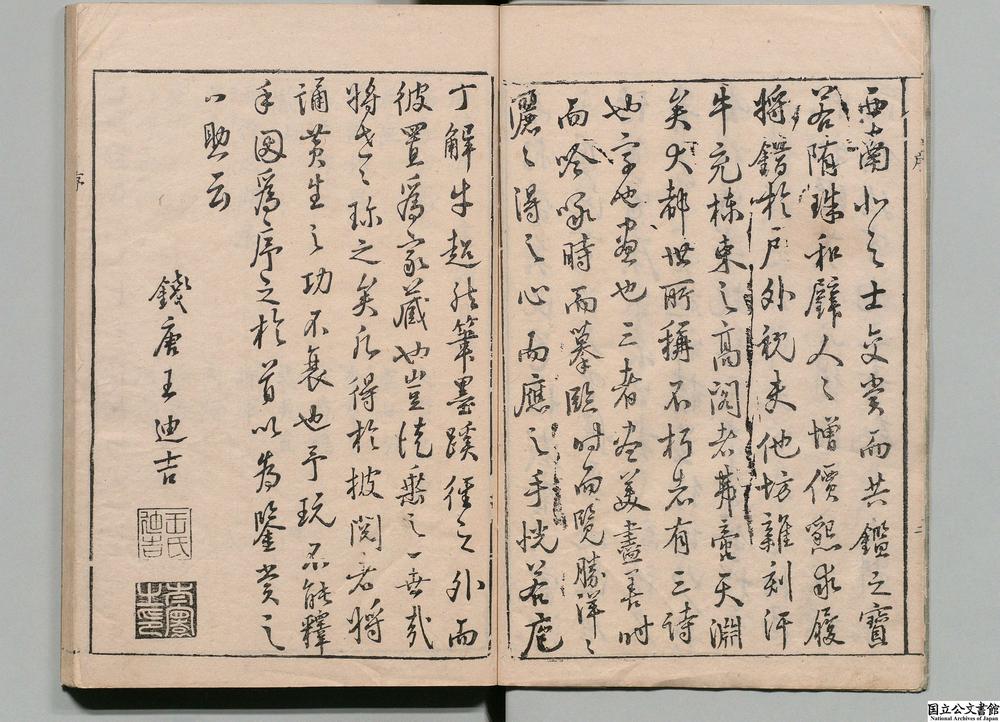 西南北之士交賞而共鑑之寶
若隋珠和璧人々增價懇求履
將錯於戶外視夫他坊雜刻汗
牛充棟束之高閣者第壹天淵
矣大都世所稱不朽者有三詩
也字也畫也三者盡美盡善時
而吟咏時而摹臨時而覽勝洋々
灑々得之心而應之手恍若庖
丁解牛超於筆墨蹊徑之外而
彼置為家藏也豈徒樂之一世哉
將老之珍之矣永得於披閱者將
誦黃生之功不衰也予玩不能釋
手因為序之於首以為鑒賞之
一助云
錢唐王迪吉
王氏迪吉
序
国立公文書館
National Archives of Japan